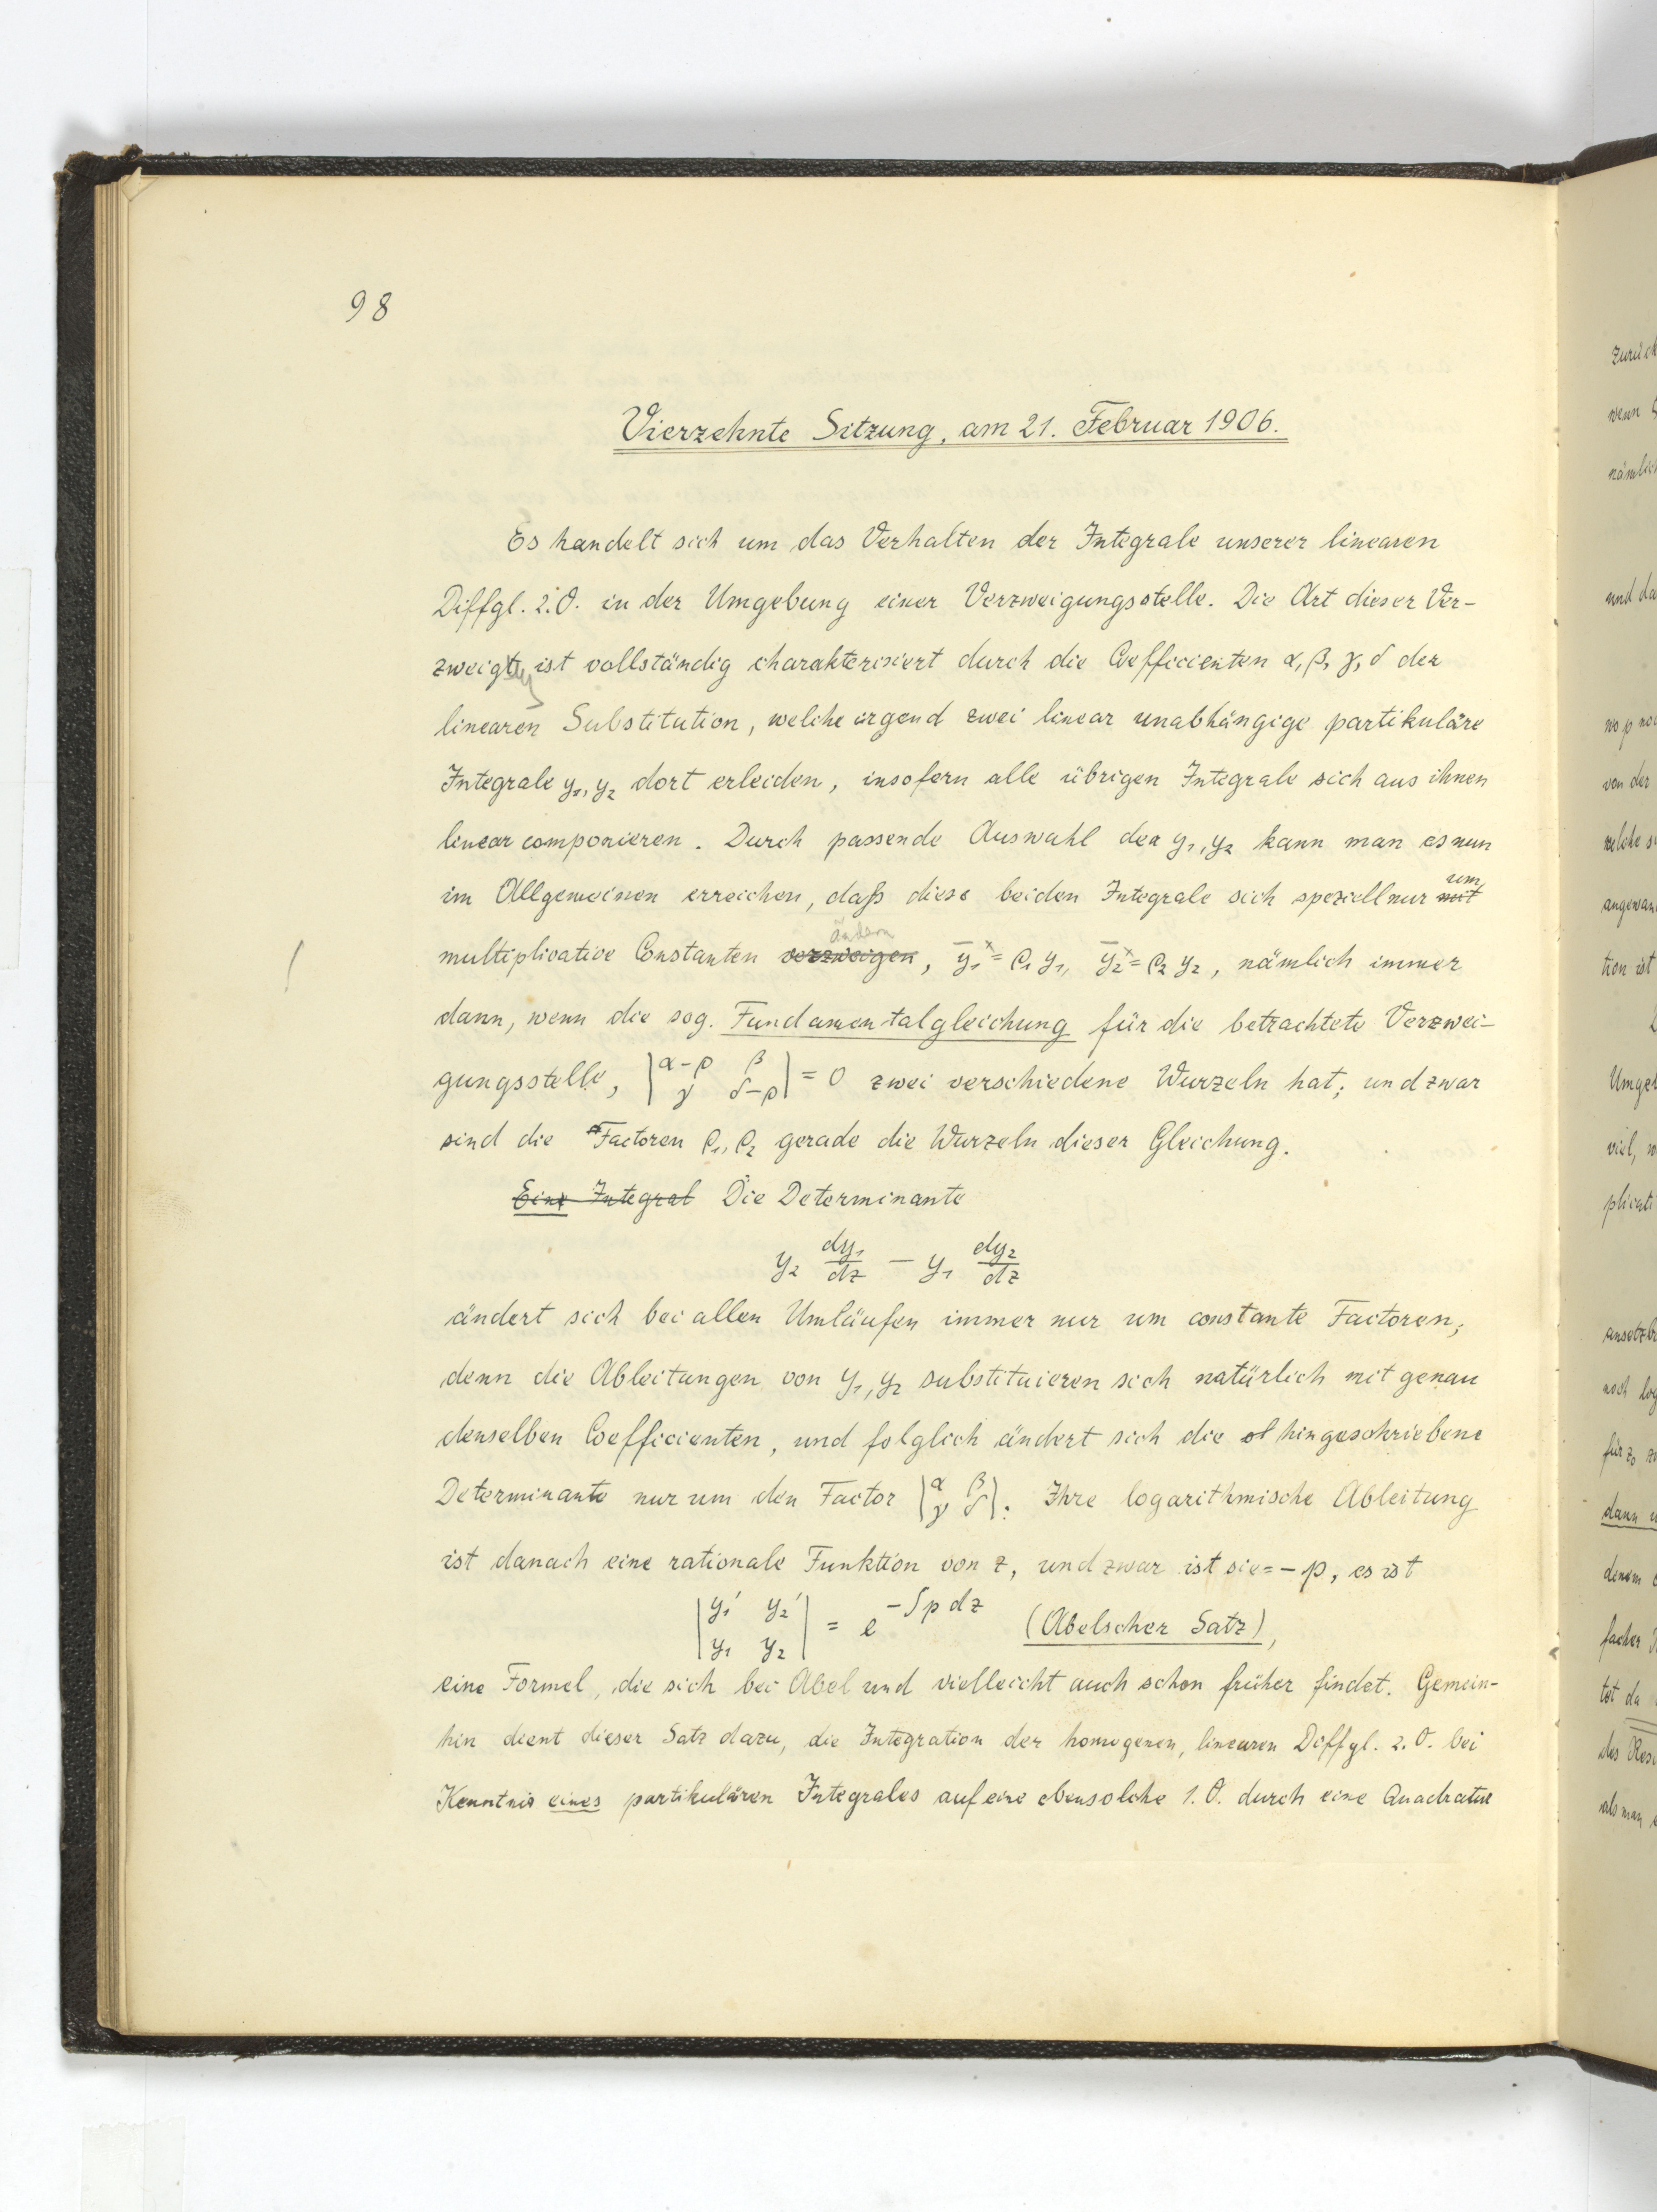 98
Vierzehnte Sitzung, am 21. Februar 1906.
Es handelt sich um das Verhalten der Integrale unserer linearen
Diffgl. 2. O. in der Umgebung einer Verzweigungsstelle. Die Art dieser Ver-
zweigg ist vollständig charakterisiert durch die Coefficienten α, β, γ, δ der
linearen Substitution, welche irgend zwei linear unabhängige partikuläre
Integrale y₁, y₂ dort erleiden, insofern alle übrigen Integrale sich aus ihnen
linear componieren. Durch passende Auswahl der y₁, y₂ kann man es nun
im Allgemeinen erreichen, daß diese beiden Integrale sich speziell nur mit um
multiplicative Constanten verzweigen ändern, ȳ₁ˣ = ρ₁ y₁, ȳ₂ˣ = ρ₂ y₂, nämlich immer
dann, wenn die sog. Fundamentalgleichung für die betrachtete Verzwei-
gungsstelle, |α-ρ β γ δ-ρ| = 0 zwei verschiedene Wurzeln hat; und zwar
sind die Factoren ρ₁, ρ₂ gerade die Wurzeln dieser Gleichung.
Eine Integral Die Determinante
y₂ dy₁/dz − y₁ dy₂/dz
ändert sich bei allen Umläufen immer nur um constante Factoren;
denn die Ableitungen von y₁, y₂ substituieren sich natürlich mit genau
denselben Coefficienten, und folglich ändert sich die hingeschriebene
Determinante nur um den Factor |α β γ δ|. Ihre logarithmische Ableitung
ist danach eine rationale Funktion von z, und zwar ist sie = − p, es ist
|y₁′ y₂′ y₁ y₂| = e^(−∫p dz) (Abelscher Satz),
eine Formel, die sich bei Abel und vielleicht auch schon früher findet. Gemein-
hin dient dieser Satz dazu, die Integration der homogenen, linearen Diffgl. 2. O. bei
Kenntnis eines partikulären Integrales auf eine ebensolche 1. O. durch eine Quadratur